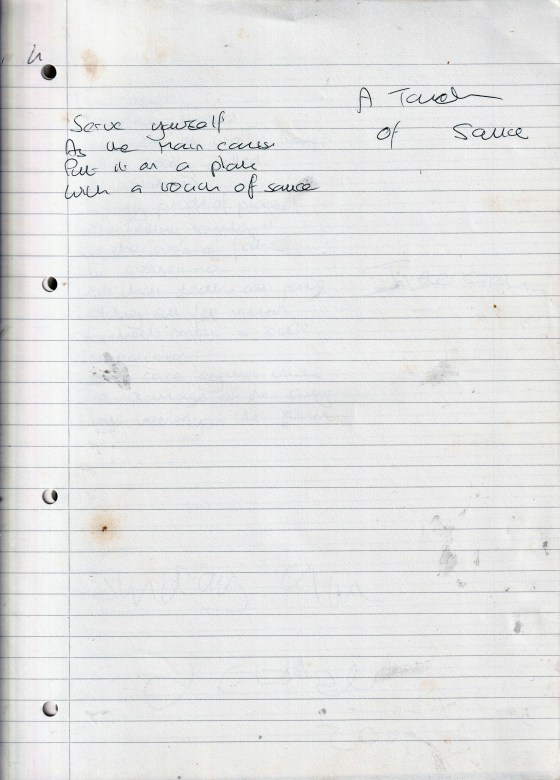 A Touch
of Sauce
Serve yourself
As the main course
Put it on a plate
with a touch of sauce